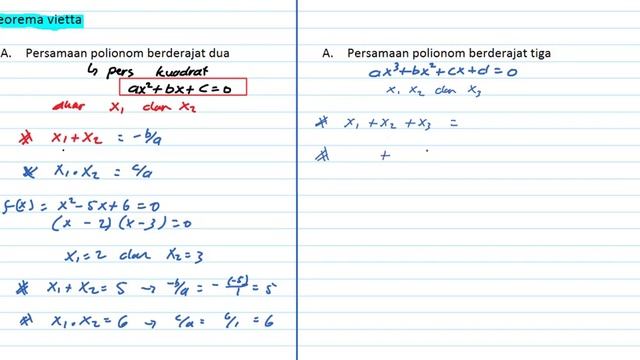 eorema vietta
A. Persamaan polionom berderajat dua
↳ pers kuadrat
ax²+bx+c=0
akar x₁ dan x₂
* x₁+x₂ = -b/a
* x₁·x₂ = c/a
f(x) = x²-5x+6=0
(x - 2)(x-3)=0
x₁=2 dan x₂=3
* x₁+x₂=5 → -b/a = - (-5)/1 = 5
* x₁·x₂=6 → c/a = 6/1 = 6
A. Persamaan polionom berderajat tiga
ax³+bx²+cx+d=0
x₁ x₂ dan x₃
* x₁ + x₂ + x₃ =
* +